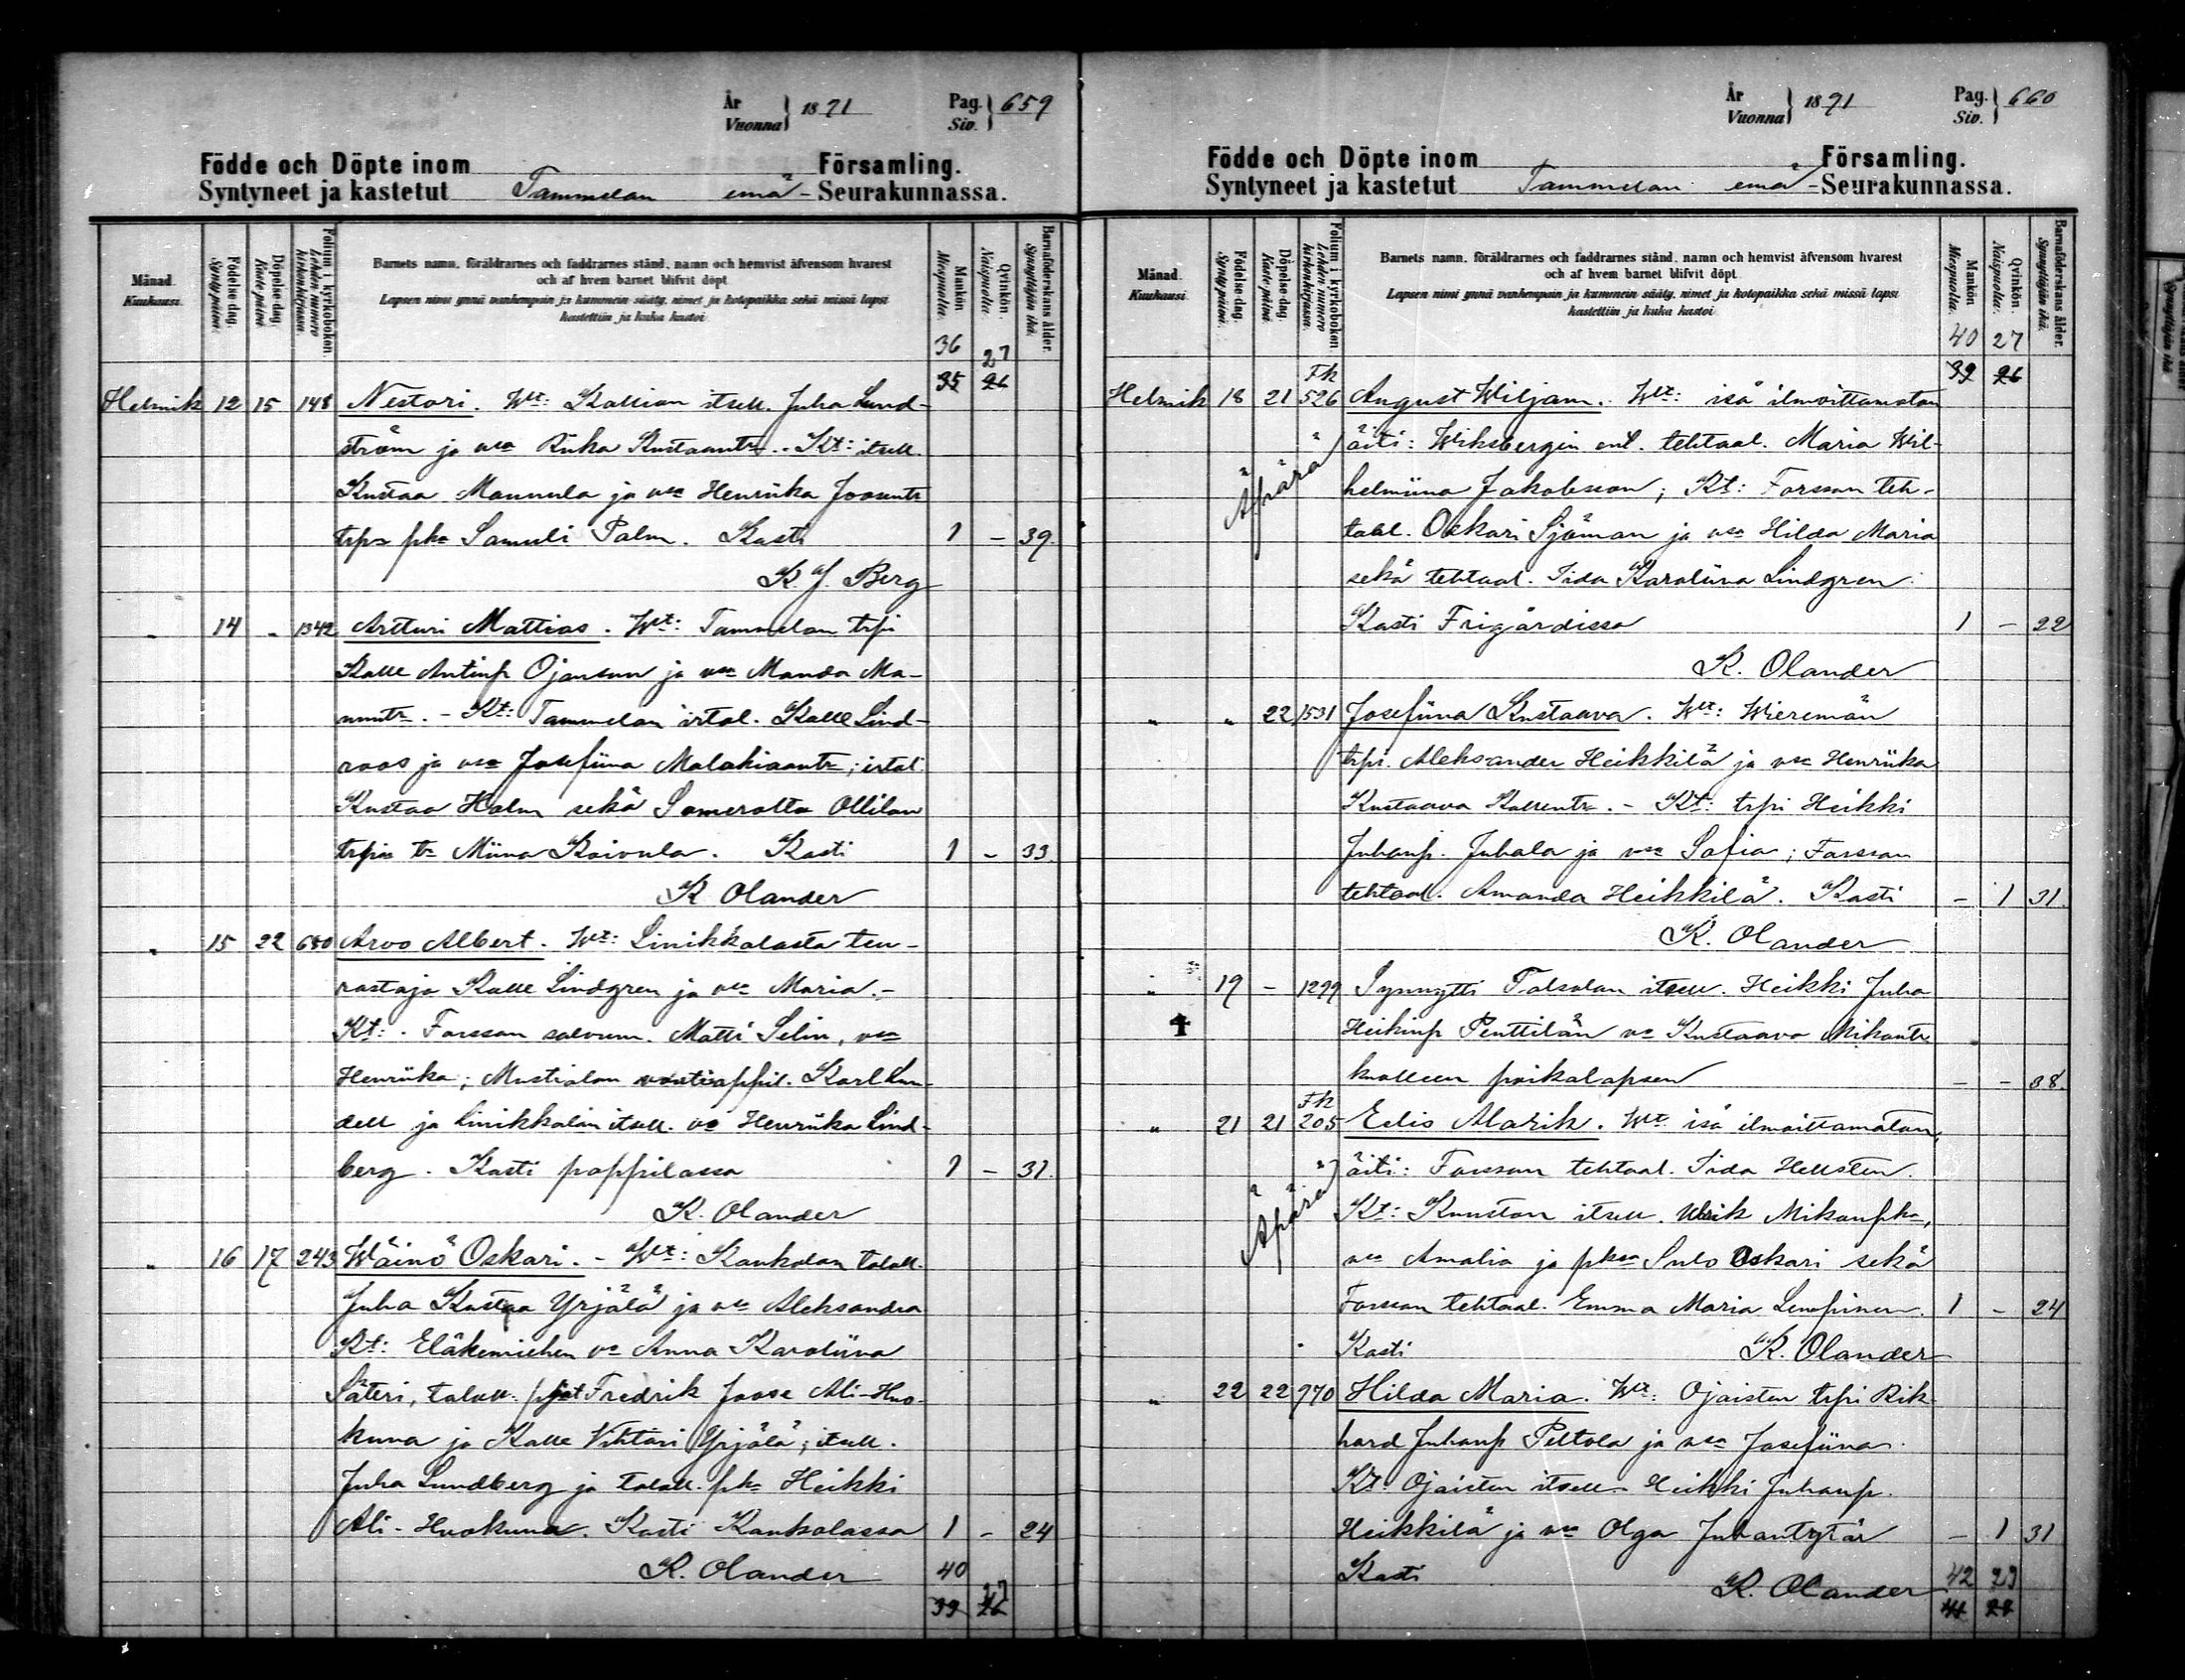 År Vuonna 1891 Pag. Siv. 659
Födde och Döpte inom Församling.
Syntyneet ja kastetut Tammelan emä- Seurakunnassa.
Månad. Kuukausi.
Födelse-dag. Syntypäivä.
Döpelse-dag. Kaste päivä
Folium i kyrkoboken. Lehden numero kirkonkirjassa.
Barnets namn, föräldrarnes och faddrarnes stånd, namn och hemvist äfvensom hvarest
och af hvem barnet blifvit döpt.
Lapsen nimi ynnä vanhempain ja kummein sääty, nimet ja kotopaikka sekä missä lapsi
kastettiin ja kuka kastoi.
Mankön Miespuolia.
Qvinkön. Naispuolia.
Barnaföderskans ålder. Synnyttäjän ikä.
36 27
35 26
Helmik 12 15 148 Nestori. Wt: Kallion itsell. Juha Lund-
ström ja vsa Riika Kustaantr. - Kt: itsell.
Kustaa Mannula ja vsa Henriika Joosuntr
trpn pka Samuli Palm. Kasti 1 - 39.
K. J. Berg
" 14 " 1342 Artturi Mattias. Wt: Tammelan trpi
Kalle Antinp Ojansuu ja vsa Manda Ma-
nuntr. - Kt: Tammelan irtol. Kalle Lind-
roos ja vsa Josefiina Malakiaantr; irtol.
Kustaa Holm sekä Somerolta Ollilan
trpin tr Miina Koivula. Kasti 1 - 33.
K Olander
" 15 22 680 Arvo Albert. Wt: Linikkalasta teu-
rastaja Kalle Lindgren ja vsa Maria. -
Kt: Forssan salvum. Matti Selin, vsa
Henriika; Mustialan Karl Lun-
dell ja Linikkalan itsell. va Henriika Lind-
berg. Kasti pappilassa 1 - 31.
K. Olander
" 16 17 243 Wäinö Oskari. - Wt: Kaukolan taloll.
Juha Kustaa Yrjälä ja vsa Aleksandra
Kt: Eläkemiehen va Anna Karoliina
Säteri, taloll. pjat Fredrik Joose Ali-Huo-
kuna ja Kalle Vihtori Yrjälä; itsell.
Juha Lundberg ja taloll. pka Heikki
Ali-Huokuna. Kasti Kaukolassa 1 - 24
K. Olander 40
39 26 27
År Vuonna 1891 Pag. Siv. 660
Födde och Döpte inom Församling.
Syntyneet ja kastetut Tammelan emä- Seurakunnassa.
Månad. Kuukausi
Födelse-dag. Syntypäivä.
Döpelse-dag. Kaste päivä.
Folium i kyrkoboken. Lehden numero kirkonkirjassa.
Barnets namn, föräldrarnes och faddrarnes stånd, namn och hemvist äfvensom hvarest
och af hvem barnet blifvit döpt.
Lapsen nimi ynnä vanhempain ja kummein sääty, nimet ja kotopaikka sekä missä lapsi
kastettiin ja kuka kastoi.
Mankön Miespuolia.
Qvinkön. Naispuolia.
Barnaföderskans ålder. Synnyttäjän ikä.
40 27
39 26
Helmik 18 21 Fk 526 August Wiljam. Wt: isä ilmoittamaton
Äpärä äiti: Wiksbergin ent. tehtaal. Maria Wil-
helmiina Jakobsson; Kt: Forssan teh-
taal. Oskari Sjöman ja vsa Hilda Maria
sekä tehtaal. Iida Karoliina Lindgren.
Kasti Frigårdissa 1 - 22
K. Olander
" " 22 1531 Josefiina Kustaava. Wt: Wieremän
trpi. Aleksander Heikkilä ja vsa Henriika
Kustaava Kallentr. - Kt: trpi Heikki
Juhanp. Juhala ja vsa Sofia; Forssan
tehtaal. Amanda Heikkilä. Kasti - 1 31.
K. Olander
" 19 - 1299 Synnytti Talsolan itsell. Heikki Juha
Heikinp Penttilän va Kustaava Mikontr
kuolleen poikalapsen - - 38.
" 21 21 Fk 205 Edis Alarik. Wt isä ilmoittamaton,
Äpärä äiti: Forssan tehtaal. Iida Hellsten.
Kt: Kuuston itsell. Ulrik Mikonpka,
vsa Amalia ja pksa Sulo Oskari sekä
Forssan tehtaal. Emma Maria Lempinen. 1 - 24
Kasti K. Olander
" 22 22 970 Hilda Maria. Wt: Ojaisten trpi Rik-
hard Juhanp Peltola ja vsa Josefiina.
Kt: Ojaisten itsell. Heikki Juhanp.
Heikkilä ja vsa Olga Juhantytär - 1 31
Kasti K. Olander 42 29